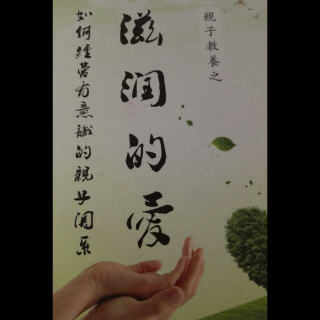 親子教養之
滋润的愛
如何經营有意識的親子関系